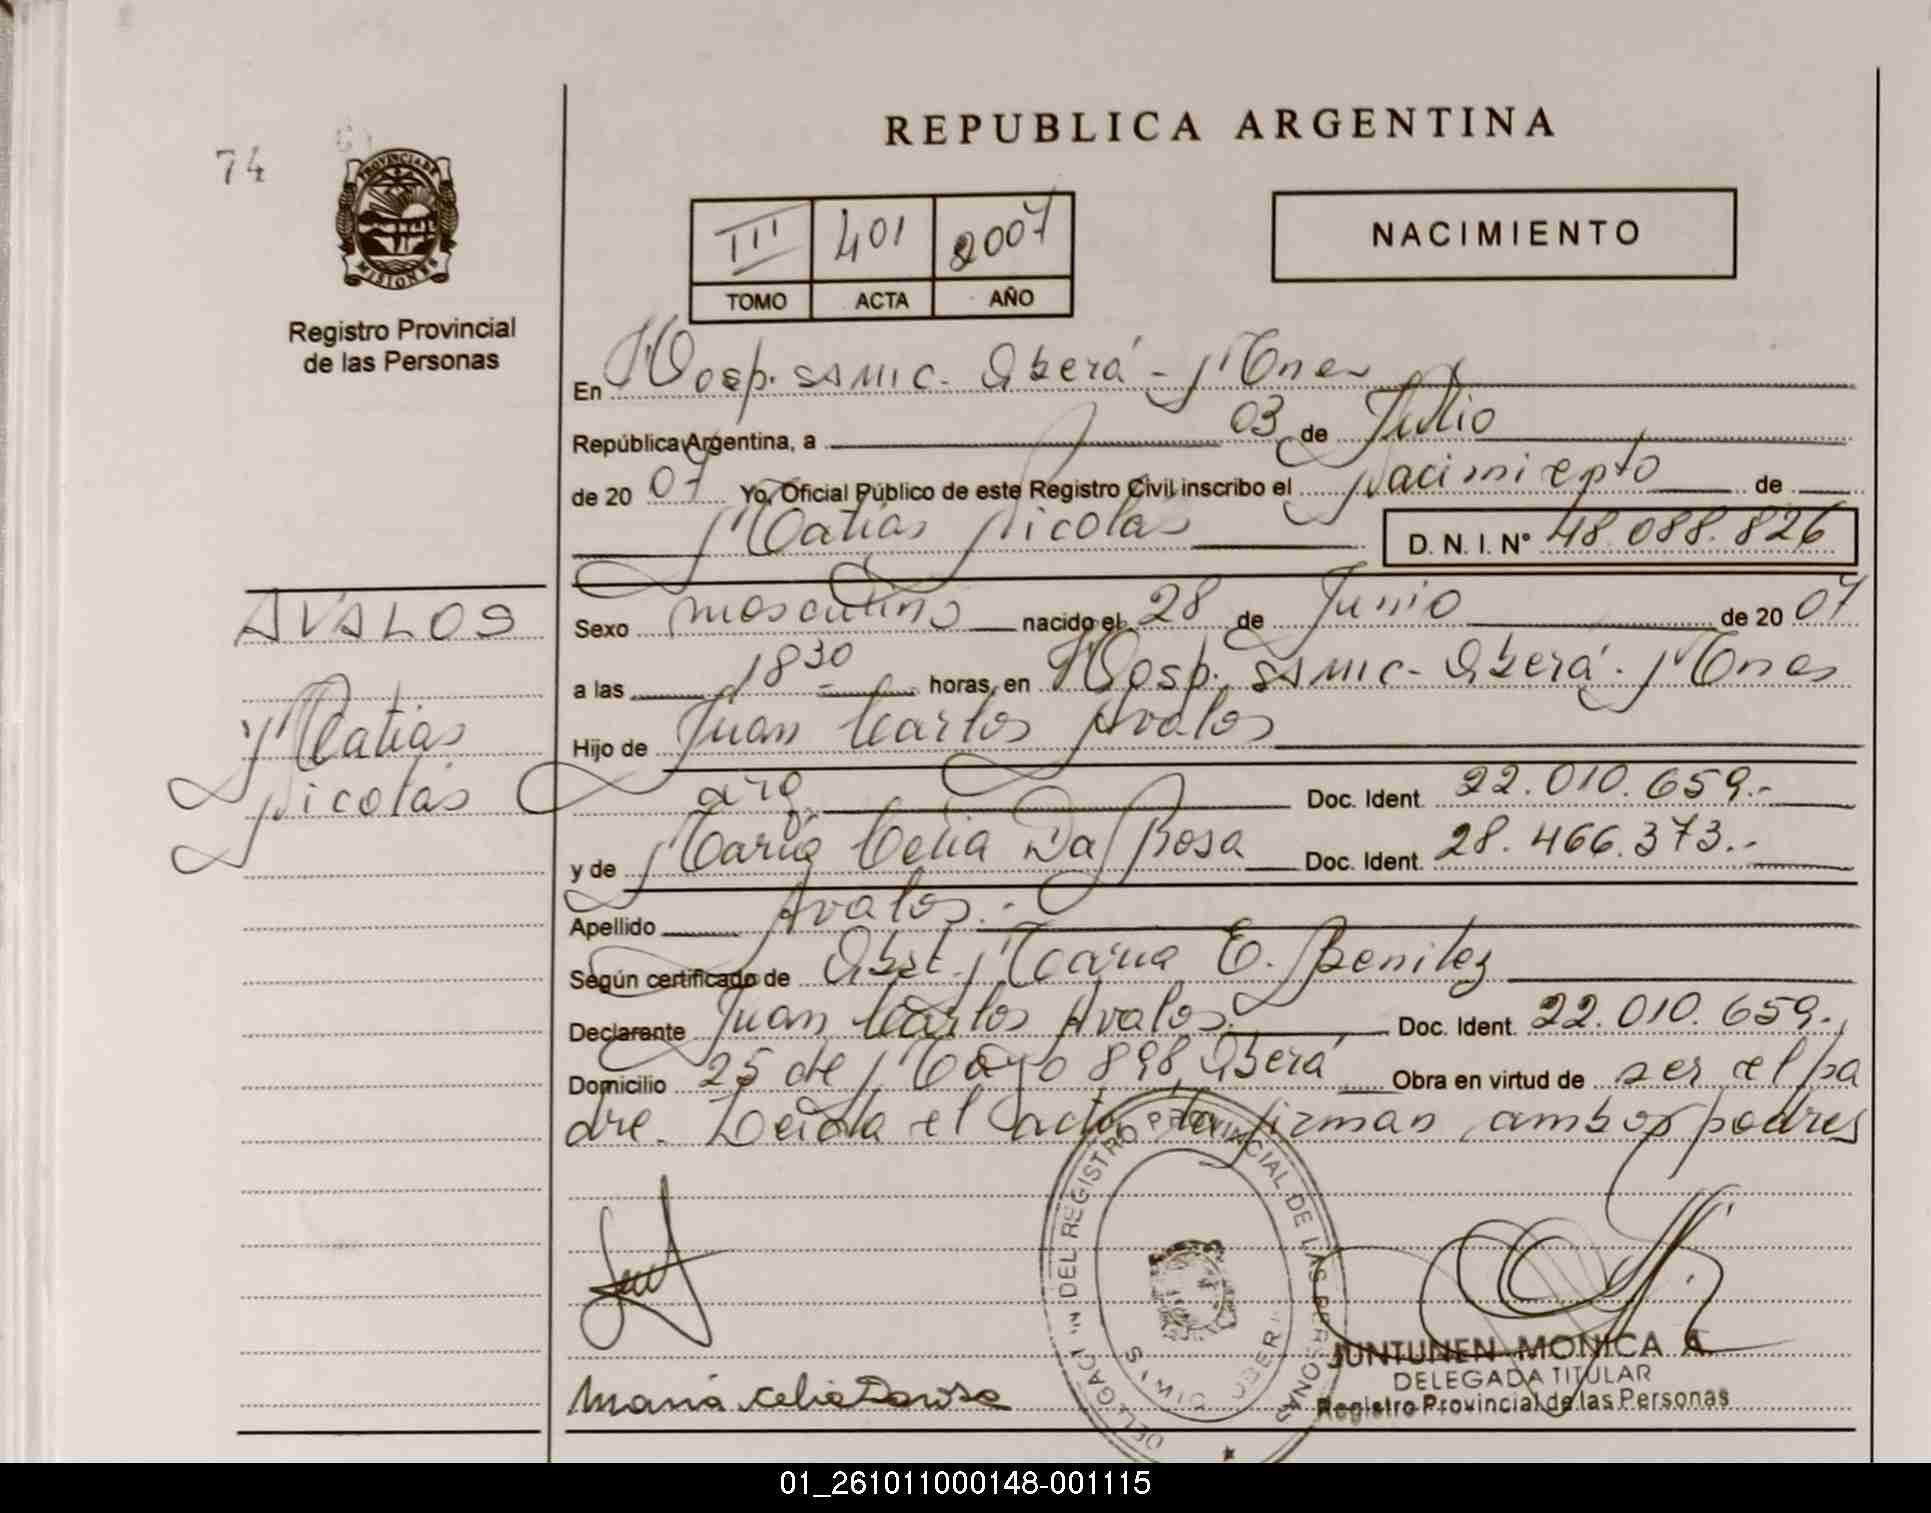 REPUBLICA ARGENTINA
74
PROVINCIA DE
MISIONES
Registro Provincial
de las Personas
III 401 2007
TOMO ACTA AÑO
NACIMIENTO
En Hosp. SAMIC - Oberá - Mnes
República Argentina, a 03 de Julio
de 20 07 Yo, Oficial Público de este Registro Civil inscribo el Nacimiento de
Matias Nicolas D. N. I. N° 48.088.826
AVALOS
Matias
Nicolás
Sexo masculino nacido el 28 de Junio de 20 07
a las 18 30 horas, en Hosp. SAMIC - Oberá - Mnes
Hijo de Juan Carlos Avalos
arg. Doc. Ident. 22.010.659.-
y de Maria Celia Da Rosa Doc. Ident. 28.466.373.-
Apellido Avalos.-
Según certificado de Obst. Maria E. Benitez
Declarante Juan Carlos Avalos. Doc. Ident. 22.010.659.-
Domicilio 25 de Mayo 898 Oberá Obra en virtud de ser el pa
dre. Leida el acta la firman ambos padres
DEL REGISTRO PROVINCIAL DE LAS PERSONAS
Maria Celia Darosa
JUNTUNEN MONICA A.
DELEGADA TITULAR
Registro Provincial de las Personas
01_261011000148-001115